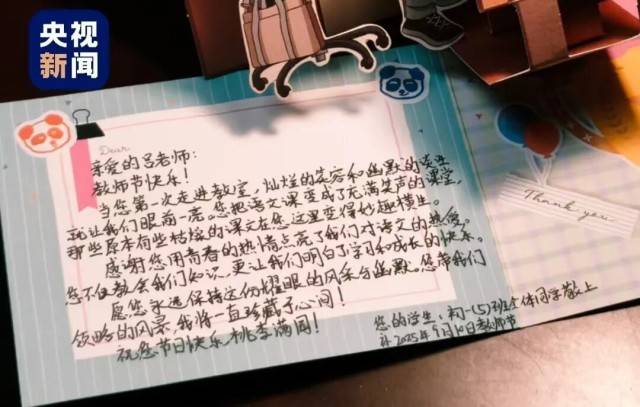 央视
新闻
Dear
亲爱的吕老师：
教师节快乐！
当您第一次走进教室，灿烂的笑容和幽默的谈吐
就让我们眼前一亮。您把语文课变成了充满笑声的课堂，
那些原本有些枯燥的课文在您这里变得妙趣横生。
感谢您用青春的热情点亮了我们对语文的热爱。
您不仅教会我们知识，更让我们明白了学习和成长的快乐。
愿您永远保持这份耀眼的风采与幽默。您带我们
领略的风景，我将一直珍藏于心间！
祝您节日快乐，桃李满园！
Thank you
您的学生：初一(5)班全体同学敬上
于2025年9月10日教师节